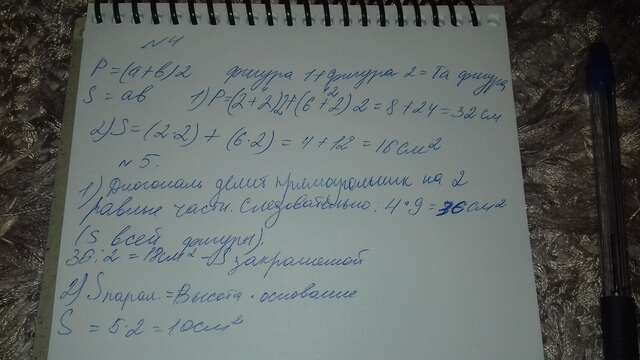 №4
P=(а+в)2 фигура 1+фигура 2=Та фигура
S=ав 1)P=(2+2)2+(6+2)2=8+24=32см
2)S=(2·2)+(6·2)=4+12=16см²
№5.
1)Диагональ делит прямоугольник на 2
равные части. Следовательно. 4·9=36см²
(S всей фигуры).
36:2=18см²-S закрашеной
2)Sпарал.=Высота·основание
S=5·2=10см²